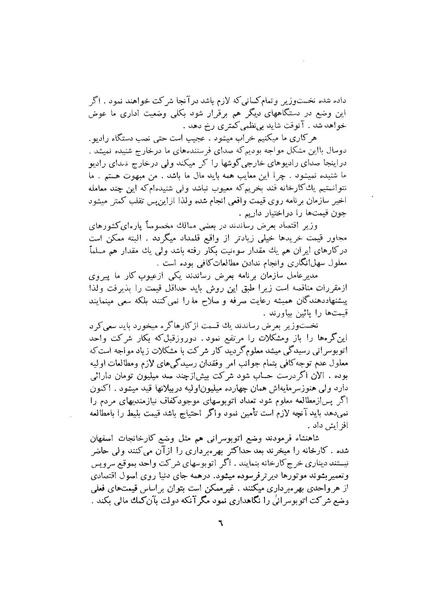 داده شده نخست‌وزیر و تمام کسانی که لازم باشد در آنجا شرکت خواهند نمود . اگر
این وضع در دستگاههای دیگر هم برقرار شود بکلی وضعیت اداری ما عوض
خواهد شد . آنوقت شاید بی‌نظمی کمتری رخ دهد .
هر کاری ما میکنیم خراب میشود . عجیب است حتی نصب دستگاه رادیو.
دو سال با این مشکل مواجه بودیم که صدای فرستنده‌های ما در خارج شنیده نمیشد .
در اینجا صدای رادیوهای خارجی گوشها را کر میکند ولی در خارج صدای رادیو
ما شنیده نمیشود . چرا این معایب همه باید مال ما باشد . من مبهوت هستم . ما
نتوانستیم یك کارخانه قند بخریم که معیوب نباشد ولی شنیده‌ام که این چند معامله
اخیر سازمان برنامه روی قیمت واقعی انجام شده ولذا از این پس تقلب کمتر میشود
چون قیمت‌ها را در اختیار داریم .
وزیر اقتصاد بعرض رساندند در بعضی ممالك مخصوصاً پاره‌ای کشورهای
مجاور قیمت خریدها خیلی زیادتر از واقع قلمداد میگردد . البته ممکن است
در کارهای ایران هم یك مقدار سوءنیت بکار رفته باشد ولی یك مقدار هم مسلماً
معلول سهل‌انگاری و انجام ندادن مطالعات کافی بوده است .
مدیرعامل سازمان برنامه بعرض رساندند یکی از عیوب کار ما پیروی
از مقررات مناقصه است زیرا طبق این روش باید حداقل قیمت را پذیرفت ولذا
پیشنهاد دهندگان همیشه رعایت صرفه و صلاح ما را نمی‌کنند بلکه سعی مینمایند
قیمت‌ها را پائین بیاورند .
نخست‌وزیر بعرض رساندند یك قسمت از کارها گره میخورد باید سعی کرد
این گره‌ها را باز و مشکلات را مرتفع نمود . دو روز قبل که بکار شرکت واحد
اتوبوسرانی رسیدگی میشد معلوم گردید کار شرکت با مشکلات زیاد مواجه است که
معلول عدم توجه کافی بتمام جوانب امر و فقدان رسیدگی‌های لازم و مطالعات اولیه
بوده . الان اگر درست حساب شود شرکت بیش از چند صد میلیون تومان دارائی
دارد ولی هنوز سرمایه‌اش همان چهارده میلیون اولیه در بیلانها قید میشود . اکنون
اگر پس از مطالعه معلوم شود تعداد اتوبوسهای موجود کفاف نیازمندیهای مردم را
نمی‌دهد باید آنچه لازم است تأمین نمود و اگر احتیاج باشد قیمت بلیط را با مطالعه
افزایش داد .
شاهنشاه فرمودند وضع اتوبوسرانی هم مثل وضع کارخانجات اصفهان
شده . کارخانه را میخرند بعد حداکثر بهره‌برداری را از آن می‌کنند ولی حاضر
نیستند دیناری خرج کارخانه بنمایند . اگر اتوبوسهای شرکت واحد بموقع سرویس
و تعمیر بشوند موتورها دیرتر فرسوده میشود. در همه جای دنیا روی اصول اقتصادی
از هر واحدی بهره‌برداری میکنند . غیر ممکن است بتوان بر اساس قیمت‌های فعلی
وضع شرکت اتوبوسرانی را نگاهداری نمود مگر آنکه دولت بآن کمك مالی بکند .
۶